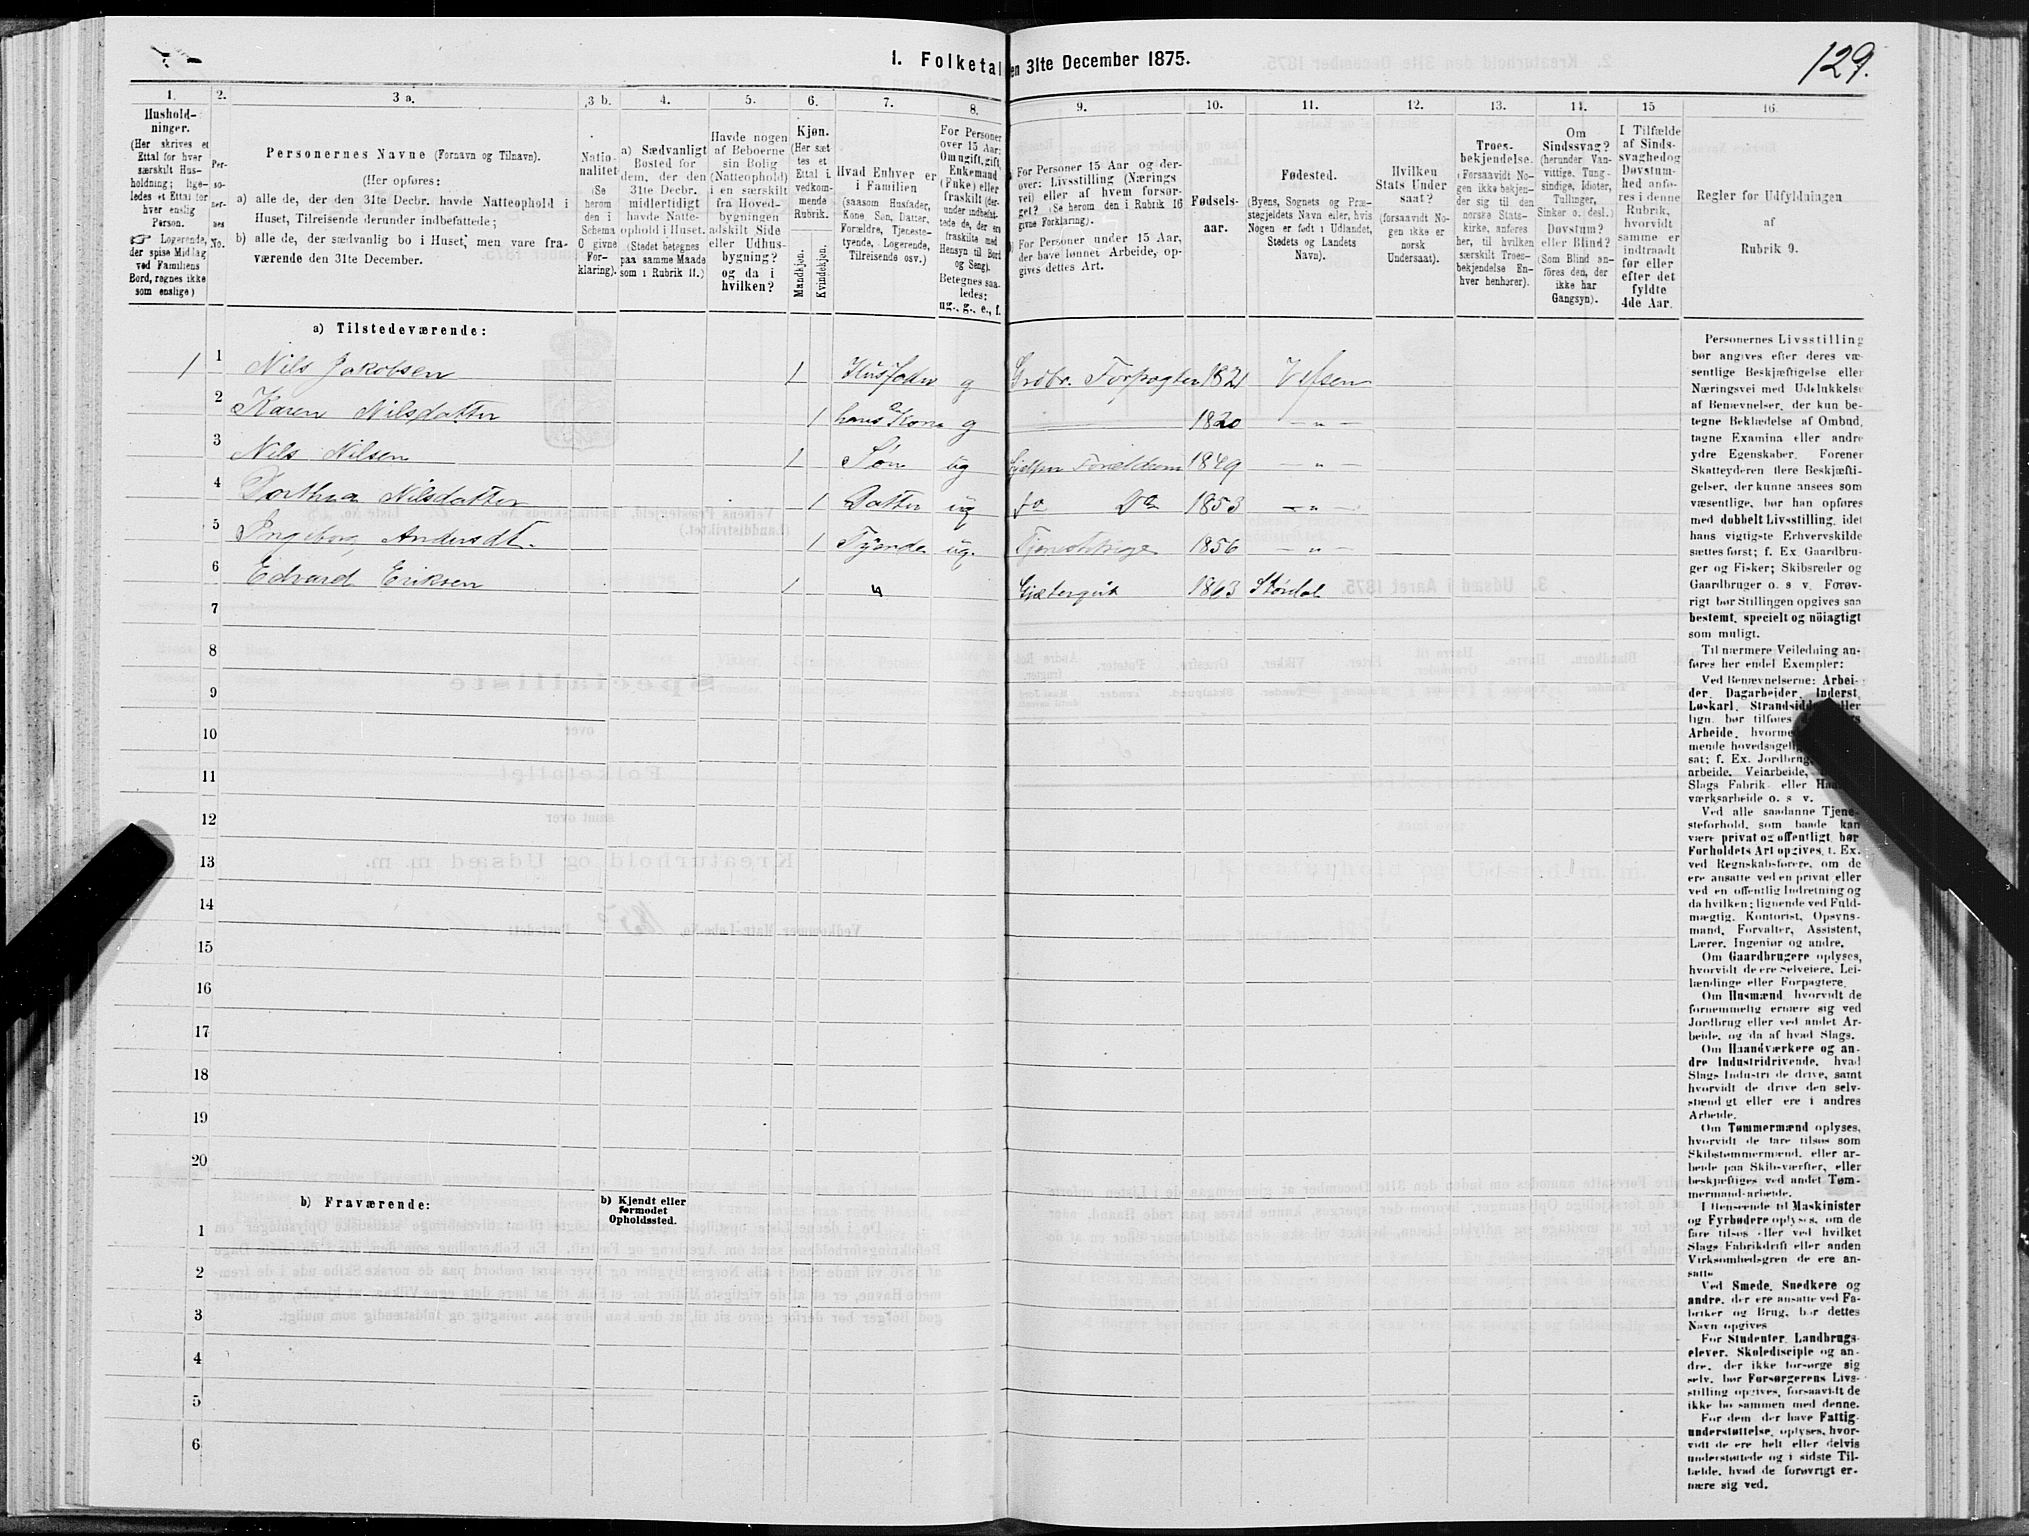 129.
1. Folketal
en 31te December 1875.
1. 2. 3 a. 3 b. 4. 5. 6. 7. 8. 9. 10. 11. 12. 13. 14. 15 16.
Hushold-
ninger.
(Her skrives et
Ettal for hver
særskilt Hus-
holdning; lige-
ledes et Ettal for
hver enslig
Person.
Logerende,
der spise Middag
ved Familiens
Bord, regnes ikke
som enslige)
Per-
so-
ner-
nes
No.
Personernes Navne (Fornavn og Tilnavn).
(Her opføres:
a) alle de, der den 31te Decbr. havde Natteophold i
Huset, Tilreisende derunder indbefattede;
b) alle de, der sædvanlig bo i Huset, men vare fra-
værende den 31te December.
Natio-
nalitet
(Se
herom
den i
Schema
C givne
For-
klaring).
a) Sædvanligt
Bosted for
dem, der den
31te Decbr.
midlertidigt
havde Natte-
ophold i Huset.
(Stedet betegnes
paa samme Maade
som i Rubrik 11.)
Havde nogen
af Beboerne
sin Bolig
(Natteophold)
i en særskilt
fra Hoved-
bygningen
adskilt Side
eller Udhus-
bygning?
og da i
hvilken?
Kjøn.
(Her sæt
tes et
Ettal i
vedkom-
mende
Rubrik.
Mandkjøn.
Kvindekjøn.
Hvad Enhver er
i Familien
(saasom Husfader,
Kone Søn, Datter,
Forældre, Tjeneste-
tyende, Logerende,
Tilreisende osv.)
For Personer
over 15 Aar:
Om ugift, gift,
Enkemand
(Enke) eller
fraskilt (der-
under indbefat-
tede de, der ere
fraskilte med
Hensyn til Bord
og Seng).
Betegnes saa-
ledes:
ug., g., e., f.
For Personer 15 Aar og der-
over: Livsstilling (Nærings
vei) eller af hvem forsør-
get? (Se herom den i Rubrik 16
givne Forklaring).
For Personer under 15 Aar,
der have lønnet Arbeide, op-
gives dettes Art.
Fødsels-
aar.
Fødested.
(Byens, Sognets og Præ-
stegjeldets Navn eller, hvis
Nogen er født i Udlandet,
Stedets og Landets
Navn).
Hvilken
Stats Under
saat?
(forsaavidt No-
gen ikke er
norsk
Undersaat).
Troes-
bekjendelse.
(Forsaavidt No-
gen ikke bekjen-
der sig til den
norske Stats-
kirke, anføres
her, til hvilken
særskilt Troes-
bekjendelse En-
hver henhører).
Om
Sindssvag?
(herunder Van-
vittige, Tung-
sindige, Idioter,
Tullinger,
Sinker o. desl.)
Døvstum?
eller Blind?
(Som Blind an-
føres den, der
ikke har
Gangsyn).
I Tilfælde
af Sinds-
svaghed og
Døvstum-
hed anfø-
res i denne
Rubrik,
hvorvidt
samme er
indtraadt
før eller
efter det
fyldte
4de Aar.
Regler for Udfyldningen
af
Rubrik 9.
a) Tilstedeværende:
1 1 Nils Jakobsen 1 Husfader g Grdbr. Forpagter 1821 Vefsen
2 Karen Nilsdatter 1 hans Kone g 1820 — „ —
3 Nils Nilsen 1 Søn ug Hjelper Forældrene 1849 — „ —
4 Dorthea Nilsdatter 1 Datter ug do Do 1853 — „ —
5 Ingeborg Andersdt. 1 Tyende ug. Tjenestepige 1856 — „ —
6 Edvard Eriksen 1 „ Gjætergut 1863 Størdal
7
8
9
10
11
12
13
14
15
16
17
18
19
20
b) Fraværende:
b) Kjendt eller
formodet
Opholdssted.
1
2
3
4
5
6
Personernes Livsstilling
bør angives efter deres væ-
sentlige Beskjæftigelse eller
Næringsvei med Udelukkelse
af Benævnelser, der kun be-
tegne Beklædelse af Ombud,
tagne Examina eller andre
ydre Egenskaber. Forener
Skatteyderen flere Beskjæfti-
gelser, der kunne ansees som
væsentlige, bør han opføres
med dobbelt Livsstilling, idet
hans vigtigste Erhvervskilde
sættes først; f. Ex Gaardbru-
ger og Fisker; Skibsreder og
Gaardbruger o. s v. Forøv-
rigt bør Stillingen opgives saa
bestemt, specielt og nöiagtigt
som muligt.
Til nærmere Veiledning an-
føres her endel Exempler:
Ved Benævnelserne: Arbei-
der, Dagarbeider, Inderst,
Løskarl, Strandsidder eller
lign. bør tilføres
Arbeide, hvorme
mende hovedsagelig
sat; f. Ex. Jordbrug,
arbeide, Veiarbeide,
Slags Fabrik- eller Haand-
værksarbeide o. s v.
Ved alle saadanne Tjene-
steforhold, som baade kan
være privat og offentligt, bør
Forholdets Art opgives, f. Ex.
ved Regnskabsførere, om de
ere ansatte ved en privat eller
ved en offentlig Indretning og
da hvilken; lignende ved Fuld-
mægtig, Kontorist, Opsyns-
mand, Forvalter, Assistent,
Lærer, Ingeniør og andre.
Om Gaardbrugere oplyses,
hvorvidt de ere Selveiere, Lei-
lændinge eller Forpagtere.
Om Husmænd, hvorvidt de
fornemmelig ernære sig ved
Jordbrug eller ved andet Ar-
beide, og da af hvad Slags.
Om Haandværkere og an-
dre Industridrivende, hvad
Slags Industri de drive, samt
hvorvidt de drive den selv-
stændigt eller ere i andres
Arbeide.
Om Tømmermænd oplyses,
hvorvidt de fare tilsøs som
Skibstømmermænd, eller ar-
beide paa Skibsværfter, eller
beskjæftiges ved andet Tøm-
mermandsarbeide.
I Henseende til Maskinister
og Fyrbødere oplyses, om de
fare tilsøs eller ved hvilket
Slags Fabrikdrift eller anden
Virksomhedsgren de ere an-
satte
Ved Smede, Snedkere og
andre, der ere ansatte ved Fa-
briker og Brug, bør dettes
Navn opgives
For Studenter, Landbrugs-
elever, Skoledisciple og an-
dre, der ikke forsørge sig
selv, bør Forsørgerens Livs-
stilling opgives, forsaavidt de
ikke bo sammen med denne.
For dem, der have Fattig-
understøttelse, oplyses, hvor-
vidt de ere helt eller delvis
understøttede og i sidste Til-
fælde, hvad de forøvrigt er-
nære sig ved.